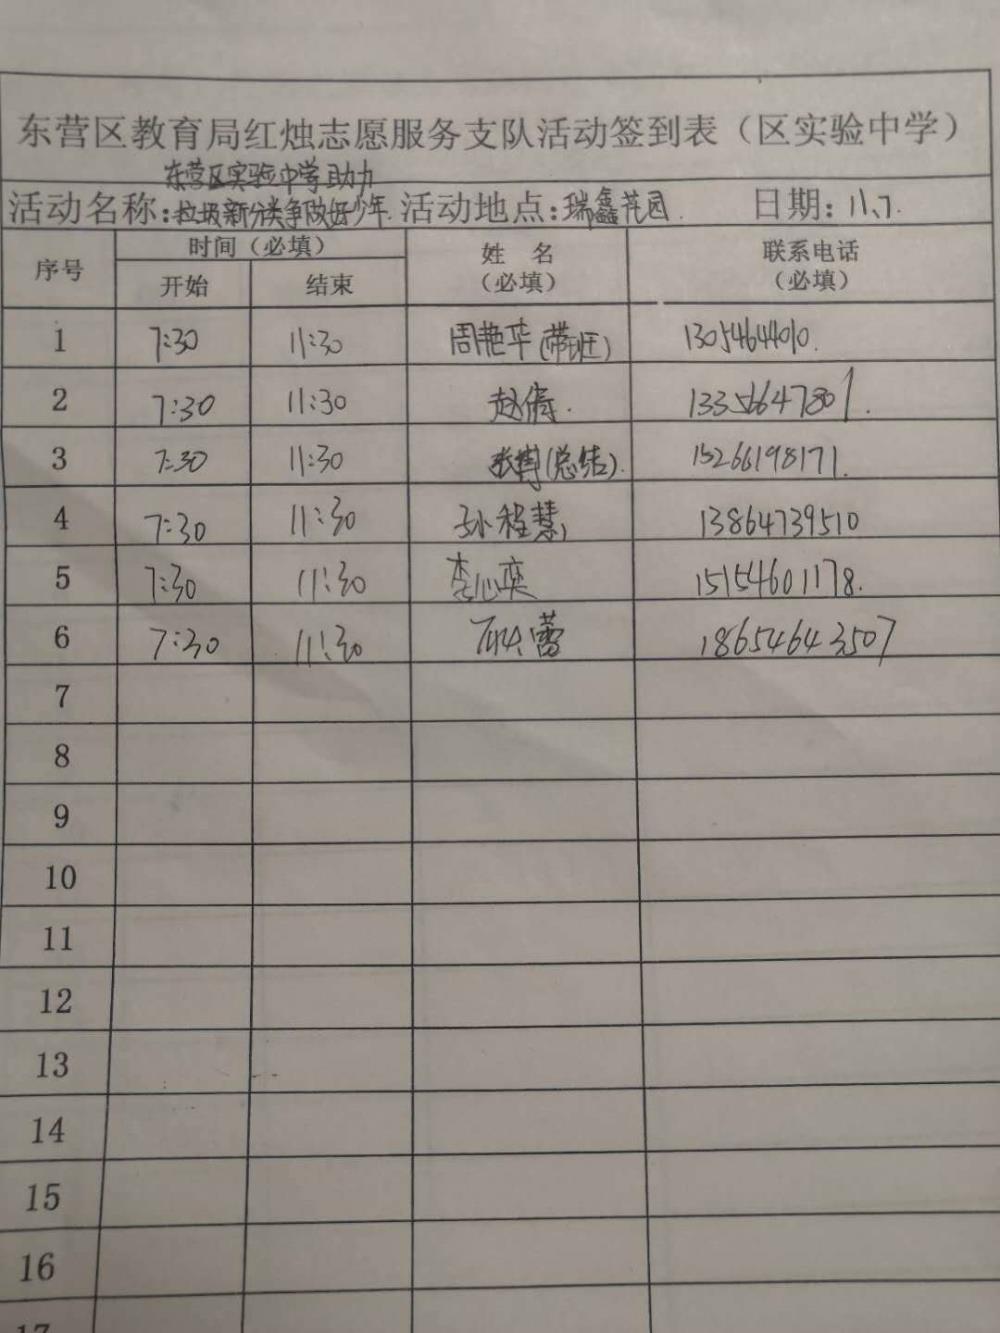 东营区教育局红烛志愿服务支队活动签到表（区实验中学）
东营区实验中学助力
活动名称:垃圾新分类争做好少年. 活动地点:瑞鑫花园. 日期: 11、7.
序号 时间（必填） 姓 名（必填） 联系电话（必填）
开始 结束
1 7:30 11:30 周艳华(带班) 13054644010.
2 7:30 11:30 赵倩. 13356647801.
3 7:30 11:30 张博(总结). 15266198171.
4 7:30 11:30 孙程慧 13864739510
5 7:30 11:30 李心奕 15154601178.
6 7:30 11:30 蕾 18654643507
7
8
9
10
11
12
13
14
15
16
17